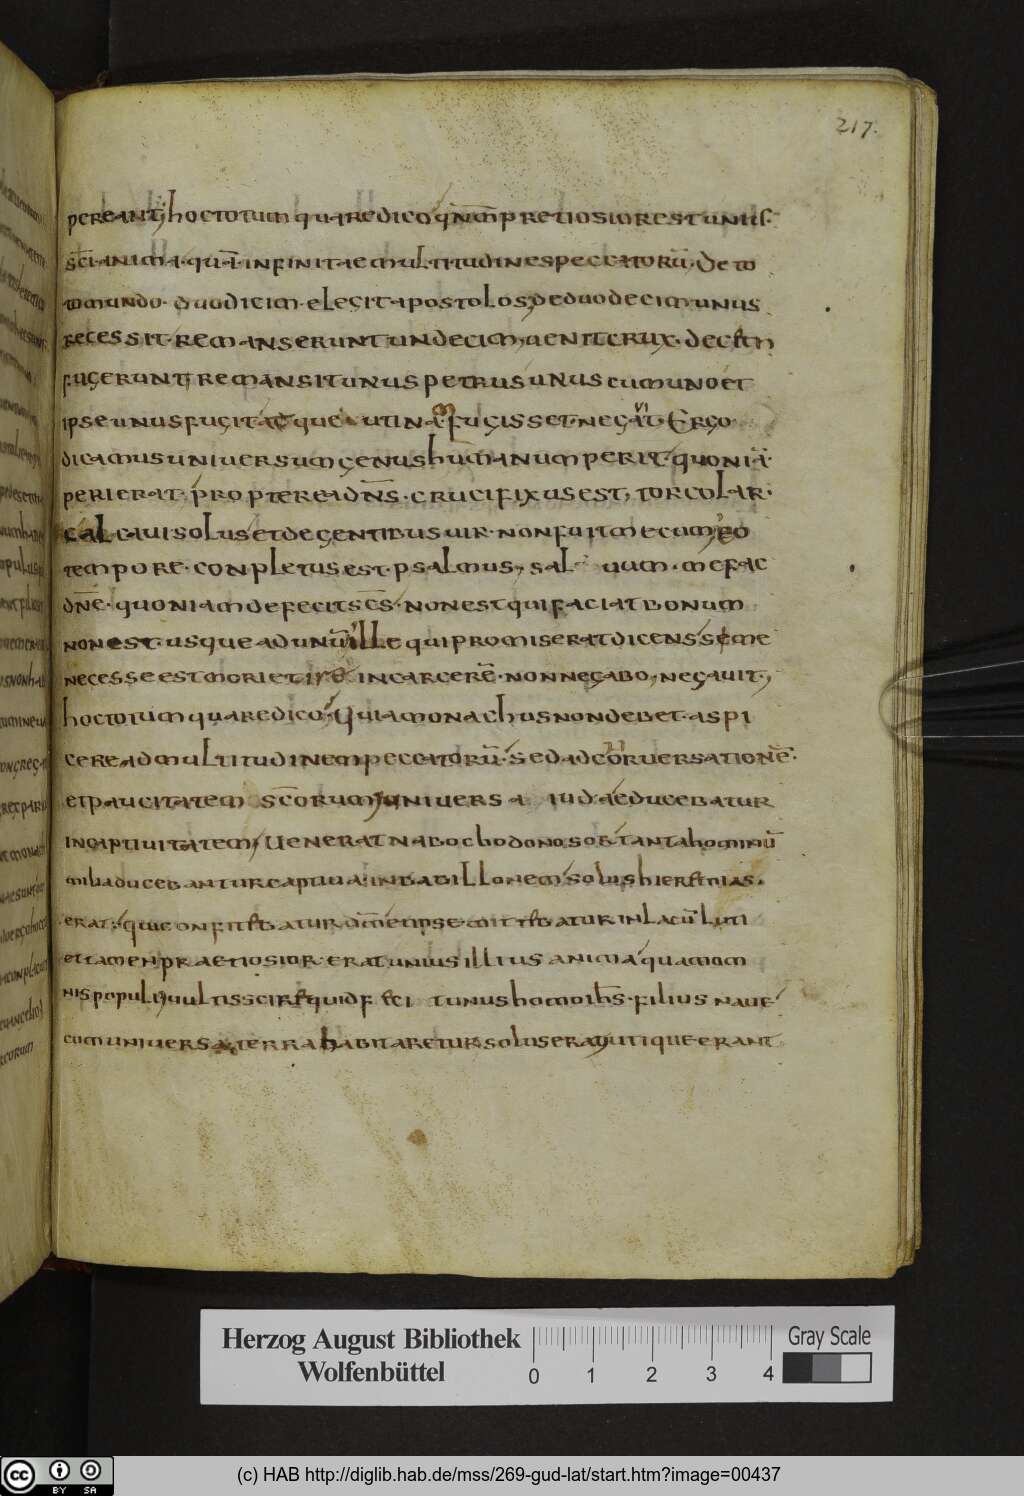 217.
pereant; hoc totum quare dico q̄nīm̄ pretiosior est unius
sc̄i anima. quā infinitae multitudines peccatorū. de to
to mundo. duodicim elegit apostolos, de duodecim unus
recessit. remanserunt undecim, uenit crux. decem
fugerunt, remansit unus petrus unus cum uno et
ipse unus fugit atque utinā fugisset. negavit. Ergo
dicamus universum genus humanum perit. quoniā.
perierat. propterea dn̄s. crucifixus est, torcolar.
calcaui solus et de gentibus uir. non fuit mecum eo
tempore. conpletus est. psalmus, saluum. me fac
dn̄e. quoniam defecit sc̄s. non est qui faciat bonum
non est. usque ad unū ille qui promiserat dicens si me
necesse est mori et ire in carcerē. non negabo, negauit.,
hoc totum quare dico. Quia monachus non debet. aspi
cere ad multitudinem peccatorū. Sed ad conuersationē.
et paucitatem sc̄orum, universa iudae ducebatur
in captiuitatem, Uenerat nabochodonosor tanta hominū
milia ducebantur captiua in babillonem solus hieremias.
erat. qui
et tamen praetiosior. erat unius illius anima quam om
nis populi, uultis scire quid feci t unus homo ih̄s. filius naue
cum universa terra habitaretur solus erat, utique erant
Herzog August Bibliothek
Wolfenbüttel
0 1 2 3 4
Gray Scale
cc BY SA
(c) HAB http://diglib.hab.de/mss/269-gud-lat/start.htm?image=00437